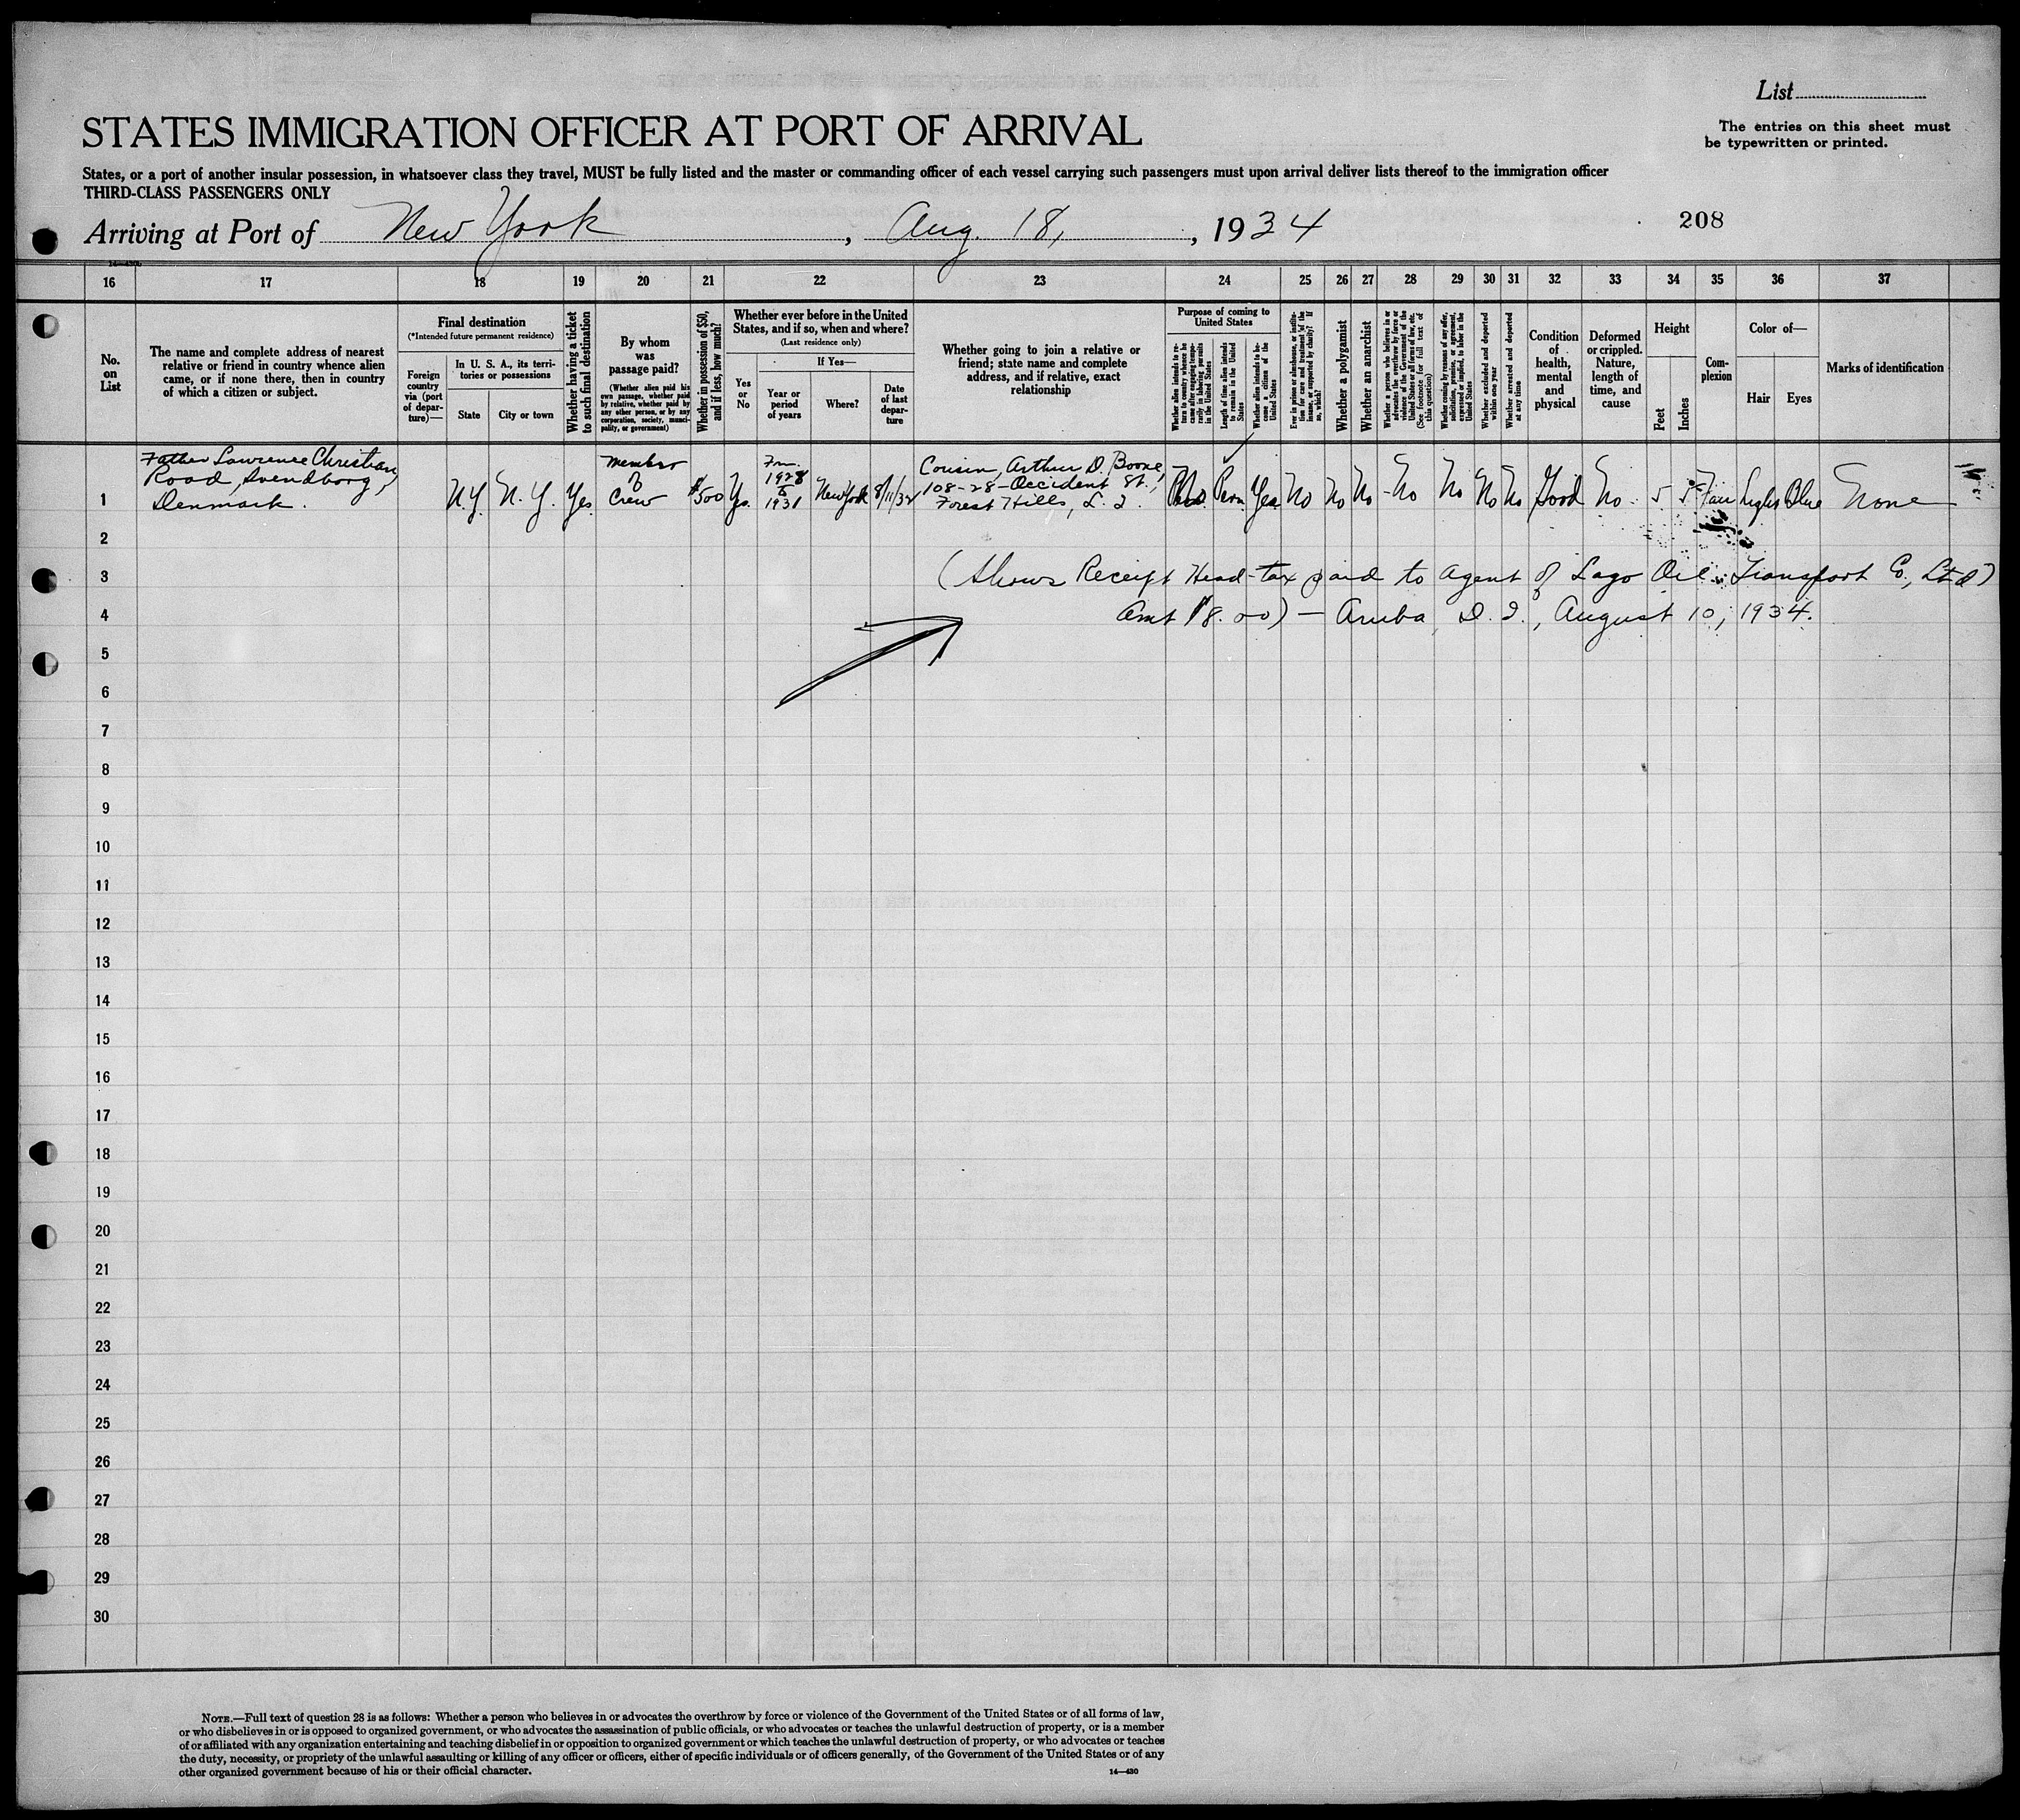 List
STATES IMMIGRATION OFFICER AT PORT OF ARRIVAL
The entries on this sheet must
be typewritten or printed.
States, or a port of another insular possession, in whatsoever class they travel, MUST be fully listed and the master or commanding officer of each vessel carrying such passengers must upon arrival deliver lists thereof to the immigration officer
THIRD-CLASS PASSENGERS ONLY
Arriving at Port of New York, Aug. 18, 1934
208
16 17 18 19 20 21 22 23 24 25 26 27 28 29 30 31 32 33 34 35 36 37
No.
on
List
The name and complete address of nearest
relative or friend in country whence alien
came, or if none there, then in country
of which a citizen or subject.
Final destination
(*Intended future permanent residence)
Foreign
country
via (port
of depar-
ture)—
In U. S. A., its terri-
tories or possessions
State
City or town
Whether having a ticket
to such final destination
By whom
was
passage paid?
(Whether alien paid his
own passage, whether paid
by relative, whether paid by
any other person, or by any
corporation, society, munici-
pality, or government)
Whether in possession of $50,
and if less, how much?
Whether ever before in the United
States, and if so, when and where?
(Last residence only)
Yes
or
No
If Yes—
Year or
period
of years
Where?
Date
of last
depar-
ture
Whether going to join a relative or
friend; state name and complete
address, and if relative, exact
relationship
Purpose of coming to
United States
Whether alien intends to re-
turn to country whence he
came after engaging tempo-
rarily in laboring pursuits
in the United States
Length of time alien intends
to remain in the United
States
Whether alien intends to be-
come a citizen of the
United States
Ever in prison or almshouse, or institu-
tion for care and treatment of the
insane, or supported by charity? If
so, which?
Whether a polygamist
Whether an anarchist
Whether a person who believes in or
advocates the overthrow by force or
violence of the Government of the
United States or all forms of law, etc.
(See footnote for full text of
this question)
Whether coming by reasons of any offer,
solicitation, promise, or agreement,
expressed or implied, to labor in the
United States
Whether excluded and deported
within one year
Whether arrested and deported
at any time
Condition
of
health,
mental
and
physical
Deformed
or crippled.
Nature,
length of
time, and
cause
Height
Feet
Inches
Com-
plexion
Color of—
Hair
Eyes
Marks of identification
1
Father Lawrence Christian,
Road, Svendborg,
Denmark.
N.Y.
N. Y.
Yes
member
of
Crew
$500
Yes
Frm.
1928
to
1931
New York
8/11/34
Cousin, Arthur D. Boone,
108-28-Occident St.,
Forest Hills, L. I.
No
Perm
Yes
No
No
No
No
No
No
No
Good
No.
5
5
Fair
Light
Blue
None
2
3
(Shows Receipt Head-tax paid to Agent of Lago Oil Transport Co., Ltd)
4
Amt $8.00) — Aruba, D. I., August 10, 1934.
5
6
7
8
9
10
11
12
13
14
15
16
17
18
19
20
21
22
23
24
25
26
27
28
29
30
NOTE.—Full text of question 28 is as follows: Whether a person who believes in or advocates the overthrow by force or violence of the Government of the United States or of all forms of law,
or who disbelieves in or is opposed to organized government, or who advocates the assassination of public officials, or who advocates or teaches the unlawful destruction of property, or is a member
of or affiliated with any organization entertaining and teaching disbelief in or opposition to organized government or which teaches the unlawful destruction of property, or who advocates or teaches
the duty, necessity, or propriety of the unlawful assaulting or killing of any officer or officers, either of specific individuals or of officers generally, of the Government of the United States or of any
other organized government because of his or their official character.
14—430